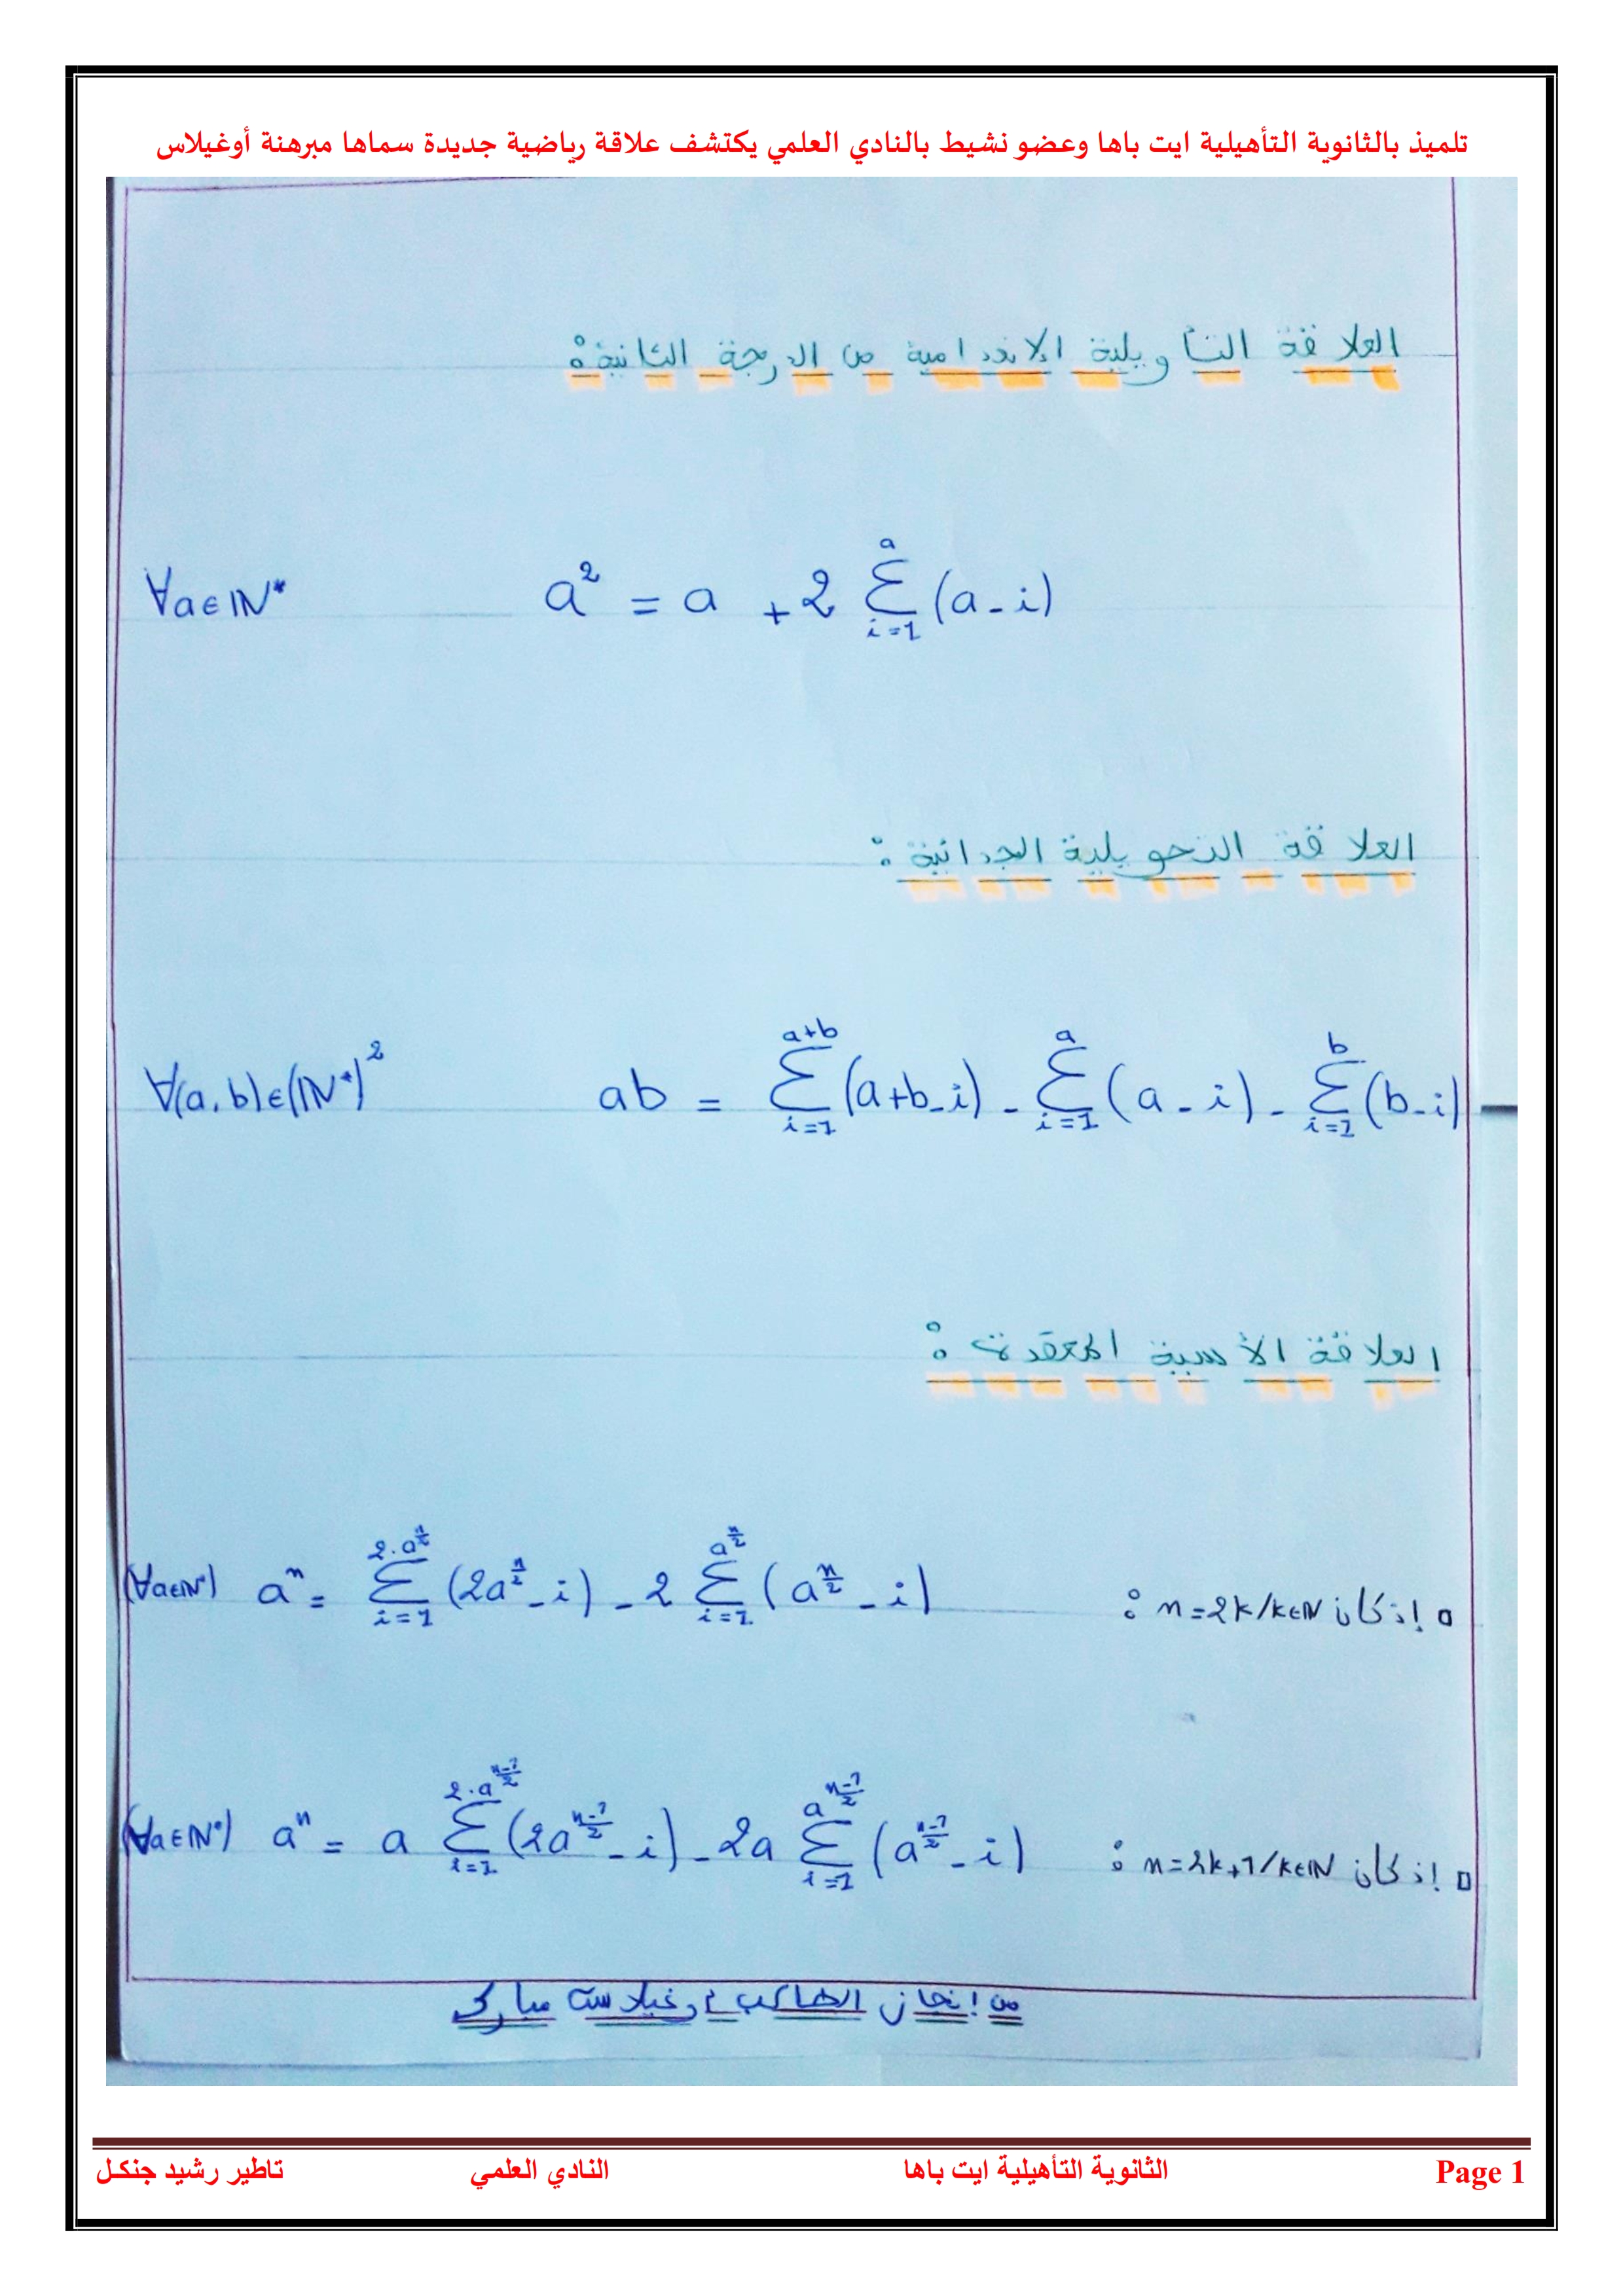 تلميذ بالثانوية التأهيلية ايت باها وعضو نشيط بالنادي العلمي يكتشف علاقة رياضية جديدة سماها مبرهنة أوغيلاس
العلاقة التأويلية الانعدامية من الدرجة الثانية:
∀a∈ℕ* a² = a + 2 Σ_{i=1}^{a} (a-i)
العلاقة التحويلية الجدائية:
∀(a,b)∈(ℕ*)² ab = Σ_{i=1}^{a+b} (a+b-i) - Σ_{i=1}^{a} (a-i) - Σ_{i=1}^{b} (b-i)
العلاقة الأسية المعقدة:
□ إذ كان n=2k/k∈ℕ : (∀a∈ℕ*) aⁿ = Σ_{i=1}^{2·a^{n/2}} (2a^{n/2}-i) - 2 Σ_{i=1}^{a^{n/2}} (a^{n/2}-i)
□ إذ كان n=2k+1/k∈ℕ : (∀a∈ℕ*) aⁿ = a Σ_{i=1}^{2·a^{(n-1)/2}} (2a^{(n-1)/2}-i) - 2a Σ_{i=1}^{a^{(n-1)/2}} (a^{(n-1)/2}-i)
من إنجاز الطالب أوغيلاست مبارك
Page 1 الثانوية التأهيلية ايت باها النادي العلمي تاطير رشيد جنكل